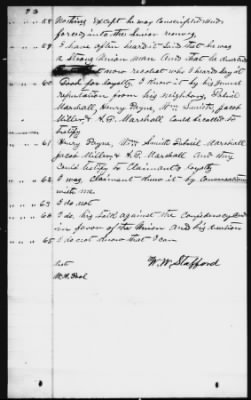 " " " 58 Nothing except he was Conscripted and
forced into the Junior reserves.
" " " 59 I have often heard it said that he was
a strong Union man. And that he deserted
now recollect who I heard say it
" " " 60 Good for loyalty. I know it by his general
reputation from his neighbors, Gabriel
Marshall, Henry Payne, Wm Smith, Jacob
Miller, & A.B. Marshall could be called to
testify
" " " 61 Henry Payne, Wm Smith Gabriel Marshall
Jacob Miller, & A.B. Marshall and they
could testify to Claimants loyalty
" " " 62 I was, Claimant knew it by Conversations
with me.
" " " 63 I do not
" " " 64 I do, his talk against the Confederacy and
in favor of the Union and his
" " " 65 I do not know that I can
W. W. Stafford
Test